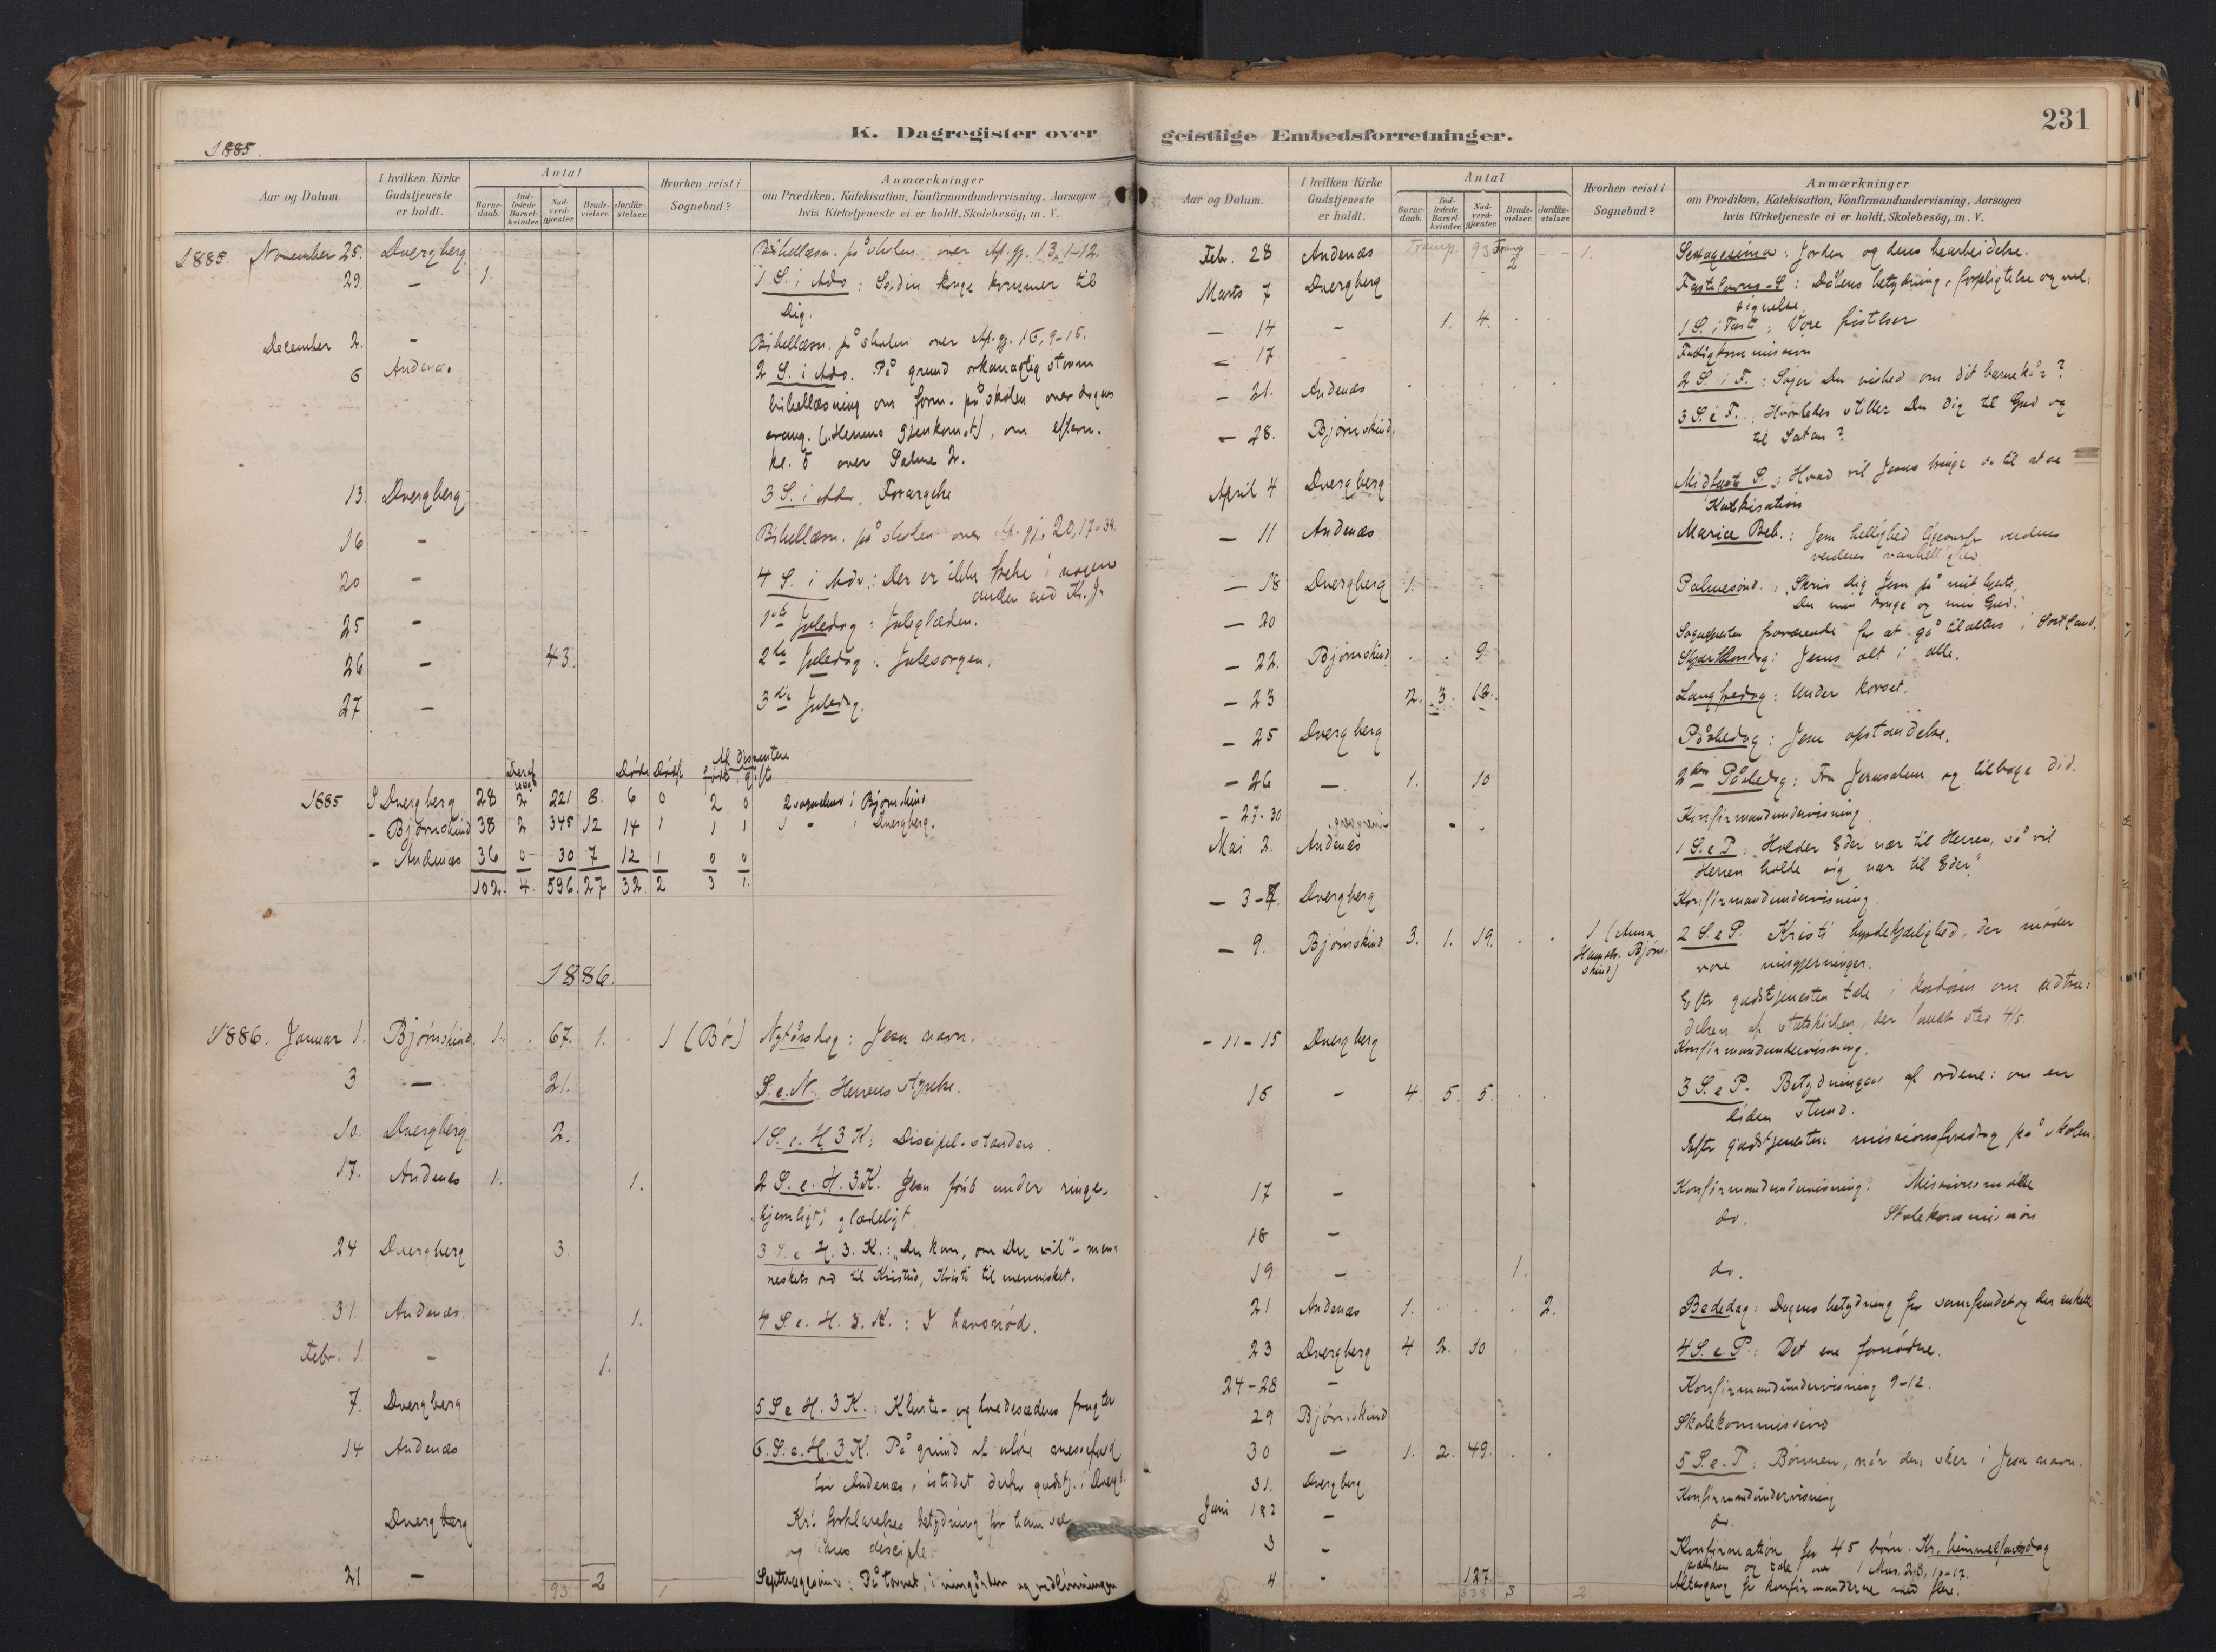 K. Dagregister over
1885.
Aar og Datum.
I hvilken Kirke Gudstjeneste er holdt.
Antal
Barnedaab.
Indledede Barselkvinder.
Nadverdgjester.
Brudevielser.
Jordfæstelser.
Hvorhen reist i Sognebud?
Anmærkninger
om Prædiken, Katekisation, Konfirmandundervisning, Aarsagen
hvis Kirketjeneste ei er holdt, Skolebesög, m. V.
1885. November 25. Dvergberg Bibellæsn. på skolen over Ap. gj. 13, 1-12.
29. — 1. 1 S. i Adv: Se, din konge kommer til
Dig.
December 2. — Bibellæsn. på skolen over Ap. gj. 16, 9-15.
6 Andenæs 2 S. i Adv. På grund orkanagtig storm
bibellæsning om form. på skolen over dagens
evang. (Herrens gjenkomst), om efterm.
kl. 5 over Salme 2.
13. Dvergberg 3 S. i Adv. Forargelse
16 — Bibellæsn. på skolen over Ap. gj. 20, 17-38.
20 — 4 S. i Adv: Der er ikke frelse i nogen
anden end Kr. J.
25 — 1ste Juledag: Juleglæden.
26 — 43. 2de Juledag: Julesorgen.
27 — 3die Juledag.
Deraf uægte Døde Dødf. Af dissentere
fødte gifte
1885 I Dvergberg 28 2 221 8. 6 0 2 0 2 sognebud i Bjørnskind
- Bjørnskind 38 2 345 12 14 1 1 1 1 - i Dvergberg.
- Andenæs 36 0 30 7 12 1 0 0
102. 4. 596. 27 32. 2 3 1.
1886.
1886. Januar 1. Bjørnskind 1. . 67. 1. . 1 (Bø) Nytårsdag: Jesu navn.
3 — 21. S. e. N. Herrens styrelse.
10. Dvergberg 2. 1 S. e. H 3 K: Discipel-standen
17. Andenæs 1. 1. 2 S. e. H. 3 K. Jesu først under ringe,
hjemligt, glædeligt
24 Dvergberg 3. 3 S. e. H. 3. K.: "Du kan, om Du vil" - men-
neskets ord til Kristus, Kristi til mennesket.
31. Andenæs. 1. 4 S. e. H. 3. K.: I havsnød.
Febr. 1. — 1.
7. Dvergberg 5 S e H. 3 K.: Klinte- og hvedesædens frugter
14 Andenæs 6. S. e. H. 3 K. På grund af
Andenæs, istedet derfor gudstj. i Dvergb.
Dvergberg Kr. forklarelses betydning for ham selv
og hans disciple.
21 — 93. 2 1 Septuagesima: På torvet, i vingården og ved lønningen
geistlige Embedsforretninger.
231
Aar og Datum.
I hvilken Kirke Gudstjeneste er holdt.
Antal
Barnedaab.
Indledede Barselkvinder.
Nadverdgjester.
Brudevielser.
Jordfæstelser.
Hvorhen reist i Sognebud?
Anmærkninger
om Prædiken, Katekisation, Konfirmandundervisning, Aarsagen
hvis Kirketjeneste ei er holdt, Skolebesög, m. V.
Febr. 28 Andenæs Transp. 93 Transp 2 1. Sexagesima: Jorden og dens bearbeidelse.
Marts 7 Dvergberg Fastelavns-S: Dåbens betydning, forpligtelse og vel-
signelse.
— 14 — 1. 4. 1 S. i Faste: Vore fristelser
— 17 — Fattigkommission
— 21. Andenæs 2 S. i F.: Søger Du vished om dit barnekår?
— 28. Bjørnskind. 3 S. i F. Hvorledes stiller Du dig til Gud og
til Satan?
April 4 Dvergberg Midfaste S.: Hvad vil Jesus bringe os til at se
Katekisation
— 11 Andenæs Mariæ Beb.: Jesu hellighed ligeoverfor verdens
verdens vanhellighed
— 18 Dvergberg 1. Palmesønd.: "Skriv dig Jesu på mit hjerte,
Du min konge og min Gud."
— 20 Sognepresten fraværende for at gå til alters i Sortland.
— 22. Bjørnskind 9 Skjærthorsdag: Jesus alt i alle.
— 23 2. 3. 12. Langfredag: Under korset.
— 25 Dvergberg Påskedag: Jesu opstandelse.
— 26 — 1. 10 2den Påskedag: Fra Jerusalem og tilbage did.
- 27-30 Dvergberg Konfirmandundervisning
Mai 2. Andenæs 1 S. e P. "Holder Eder nær til Herren, så vil
Herren holde sig nær til Eder".
— 3-7. Dvergberg Konfirmandundervisning
— 9. Bjørnskind 3. 1. 19. 1 (Anna Bjørn-
skind) 2 S. e P. Kristi hyrdekjærlighed, der møder
vore misgjerninger.
Efter gudstjenesten tale i kordøren om udtræ-
delsen af statskirken, der fandt sted 4/5.
- 11-15 Dvergberg Konfirmandundervisning.
16 — 4. 5. 5. 3 S. e P. Betydningen af ordene: om en
liden stund.
Efter gudstjenesten missionsforedrag på skolen.
17 — Konfirmandundervisning. Missionsmøde
18 — do. Skolekommission
19 — 1. do.
21 Andenæs 1. 2. Bededag: Dagens betydning for samfundet og den enkelte
23 Dvergberg 4 2. 10 4 S. e. P.: Det ene fornødne.
24-28 — Konfirmandundervisning 9-12.
29 Bjørnskind Skolekommission
30 — 1. 2. 49. 5 S. e. P: Bønnen, når den sker i Jesu navn.
31. Dvergberg Konfirmandundervisning
Juni 1&2 — do.
3 — Konfirmation for 45 børn. Kr. himmelfartsdag
og tale over 1 Mos. 28, 10-17.
4 — 127. 338 3 2 Altergang for konfirmanderne med flere.